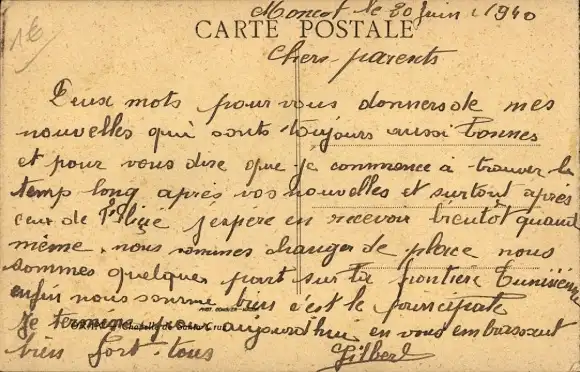 1€
le 20 juin 1940
CARTE POSTALE
Chers parents
Deux mots pour vous donners de mes
nouvelles qui sont toujours aussi bonnes
et pour vous dire que je commence à trouver le
temp long après vos nouvelles et surtout après
ceux de j'espère en recevoir bientôt quand
même, nous sommes changer de place nous
sommes quelque part sur la frontiere Tunisienne
enfin nous somme bien c'est le principale
Chapelle de Santa Cruz
Je termine pour aujourd'hui en vous embrassant
bien fort tous Gilbert